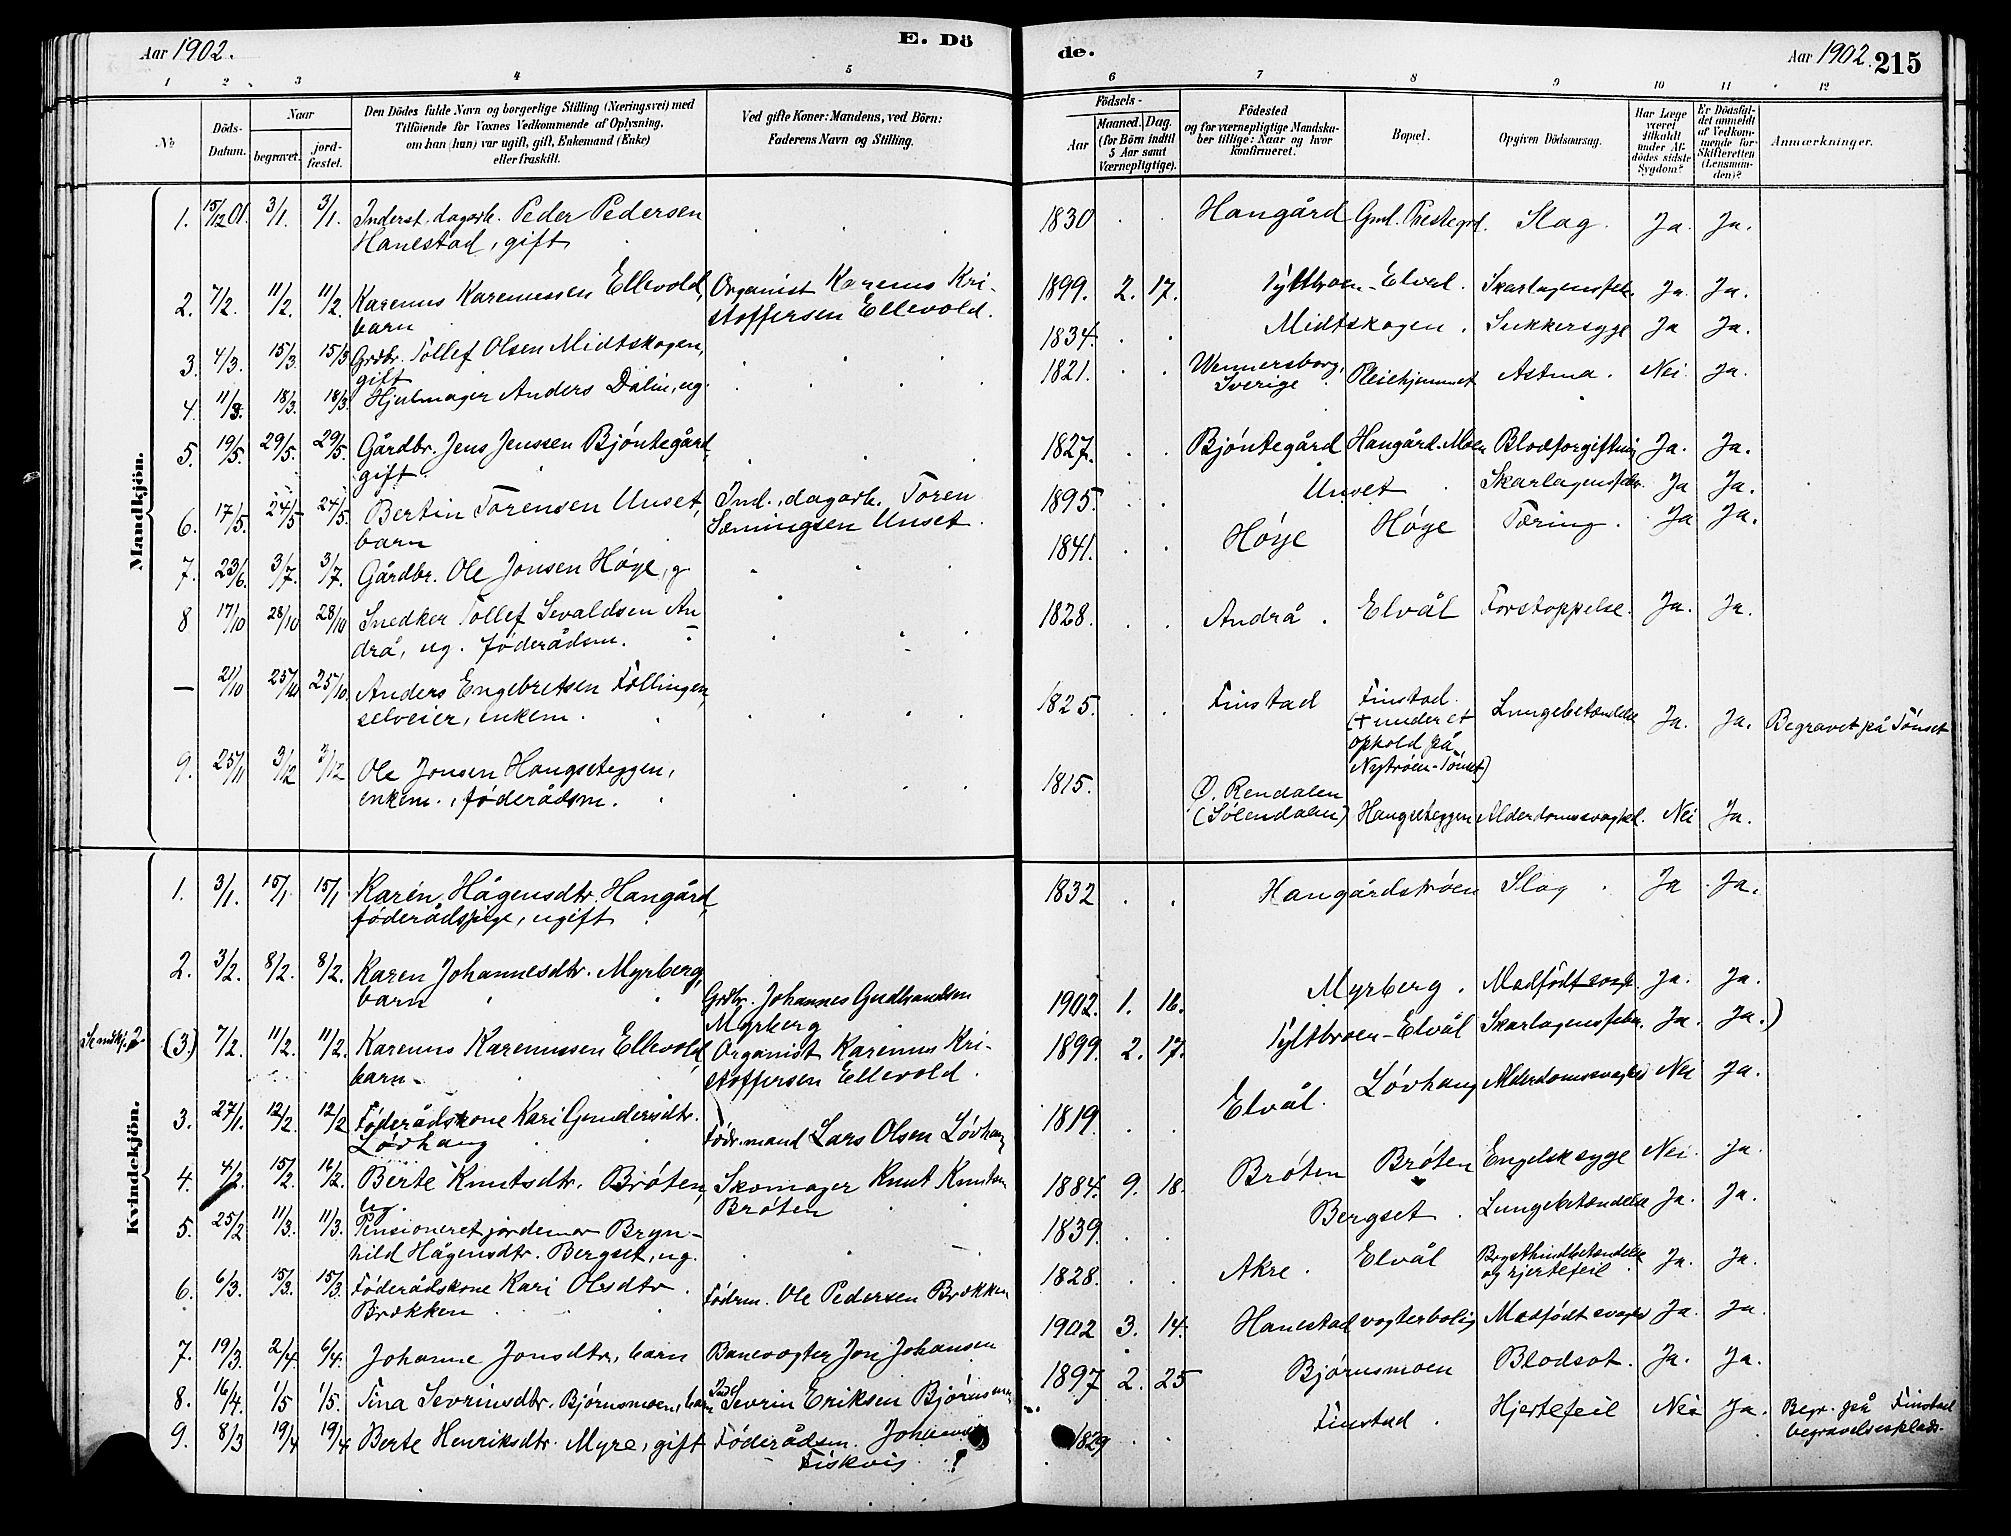 Aar 1902.
E. Dö
de.
Aar 1902.
215
1 2 3 4 5
6 7 8 9 10 11 12
No
Döds-Datum.
Naar
begravet.
jord-fæstet.
Den Dödes fulde Navn og borgerlige Stilling (Næringsvei) med
Tilföiende for Voxnes Vedkommende af Oplysning,
om han (hun) var ugift, gift, Enkemand (Enke)
eller fraskilt.
Ved gifte Koner: Mandens, ved Börn:
Faderens Navn og Stilling.
Födsels-
Aar
Maaned. Dag.
(for Börn indtil
5 Aar samt
Værnepligtige).
Födested
og for værnepligtige Mandska-
ber tillige: Naar og hvor
konfirmeret.
Bopæl.
Opgiven Dödsaarsag.
Har Læge
været
tilkaldt
under Af-
dödes sidste
Sygdom?
Er Dödsfal-
det anmeldt
af Vedkom-
mende for
Skifteretten
(Lensman-
den)?
Anmærkninger.
Mandkjön.
1. 15/12 01. 3/1. 3/1. Inderst. dagarb. Peder Pedersen
Hanestad, gift
1830 Hangård Gml. Prestegrd. Slag. Ja. Ja.
2. 7/2. 11/2. 11/2. Karenus Karenussen Ellevold, Organist Karenus Kri-
barn stoffersen Ellevold.
1899. 2. 17. Tyltbroen-Elvål. Skarlagensfeb. Ja. Ja.
3. 4/3. 15/3. 15/3 Grdbr. Tollef Olsen Midtskogen,
gift
1834. Midtskogen. Sukkersyge Ja Ja.
4. 11/3. 18/3. 18/3. Hjulmager Anders Dalin, ug.
1821. Wennersborg, Sverige Pleiehjemmet Astma. Nei. Ja.
5. 19/5. 29/5. 29/5. Gårdbr. Jens Jenssen Bjöntegård,
gift.
1827. Bjöntegård Hangård.Moen Blodforgiftning Ja. Ja.
6. 17/5. 24/5 24/5. Bertin Torensen Unset, Ind., dagarb. Toren
barn Sæmingsen Unset.
1895. Unset Skarlagensfeber Ja Ja.
7. 23/6. 3/7. 3/7. Gårdbr. Ole Jonsen Höye, g
1841. Höye Höye Tæring. Ja Ja.
8 17/10 28/10 28/10 Snedker Tollef Sevaldsen An
drå, ug. föderådsm.
1828. Andrå. Elvål Forstoppelse. Ja. Ja.
— 21/10 25/10 25/10. Anders Engebretsen Föllingen,
selveier, enkem.
1825. Finstad Finstad.
(+ under et
ophold på
Nytröen-Tönset) Lungebetændelse Ja. Ja. Begravet på Tönset
9. 25/11 3/12 3/12 Ole Jonsen Hangseteggen,
enkem., föderådsm.
1815. Ö. Rendalen
(Sölendalen) Hangseteggen Alderdomssvaghed. Nei Ja.
Kvindekjön.
1. 3/1. 15/1. 15/1 Karen Hågensdtr. Hangård,
föderådspige, ugift
1832 Hangårdströen Slag Ja Ja.
2. 3/2. 8/2. 8/2. Karen Johannesdtr. Myrberg,
barn Grdbr. Johannes Gudbrandsen
Myrberg
1902. 1. 16. Myrberg. Medfödt svagh. Ja. Ja.
(3.) 7/2. 11/2. 11/2. Karenus Karenussen Ellevold, Organist Karenus Kri-
barn stoffersen Ellevold.
1899. 2. 17. Tyltbroen-Elvål Skarlagensfeber. Ja. Ja.)
3. 27/1. 12/2. 12/2 Föderådskone Kari Gundersdtr.
Lövhaug Födr.mand Lars Olsen Lövhaug
1819. Elvål. Lövhaug Alderdomssvaghed Nei Ja.
4. 4/2. 15/2. 16/2. Berte Knutsdtr. Bröten, Skomager Knut Knutsen
ug Bröten
1884. 9. 18. Bröten Bröten Engelsk syge Nei. Ja.
5. 25/2 11/3. 11/3. Pensioneret jordemor Bryn-
hild Hågensdtr. Bergset, ug.
1839. Bergset. Lungebetændelse Ja. Ja.
6. 6/3. 15/3. 15/3 Föderådskone Kari Olsdtr.
Brækken Födrm. Ole Pedersen Brækken
1828. Akre. Elvål Brysthindebetændelse
og hjertefeil Ja. Ja.
7. 19/3. 2/4. 6/4. Johanne Jonsdtr., barn Banevogter Jon Johansen
1902 3. 14. Hanestad vogterbolig Medfödt svaghed Ja. Ja.
8. 16/4. 1/5 1/5. Tina Sevrinsdtr. Björnsmoen, barn Ind. Sevrin Eriksen Björnsmoen
1897 2. 25 Björnsmoen Blodsot. Ja. Ja.
9. 8/3 19/4 19/4 Berte Henriksdtr. Myre, gift Föderådsm. Johannes
Fiskvig
1829 Finstad. Hjertefeil Nei Ja. Begr. på Finstad
begravelsesplads.